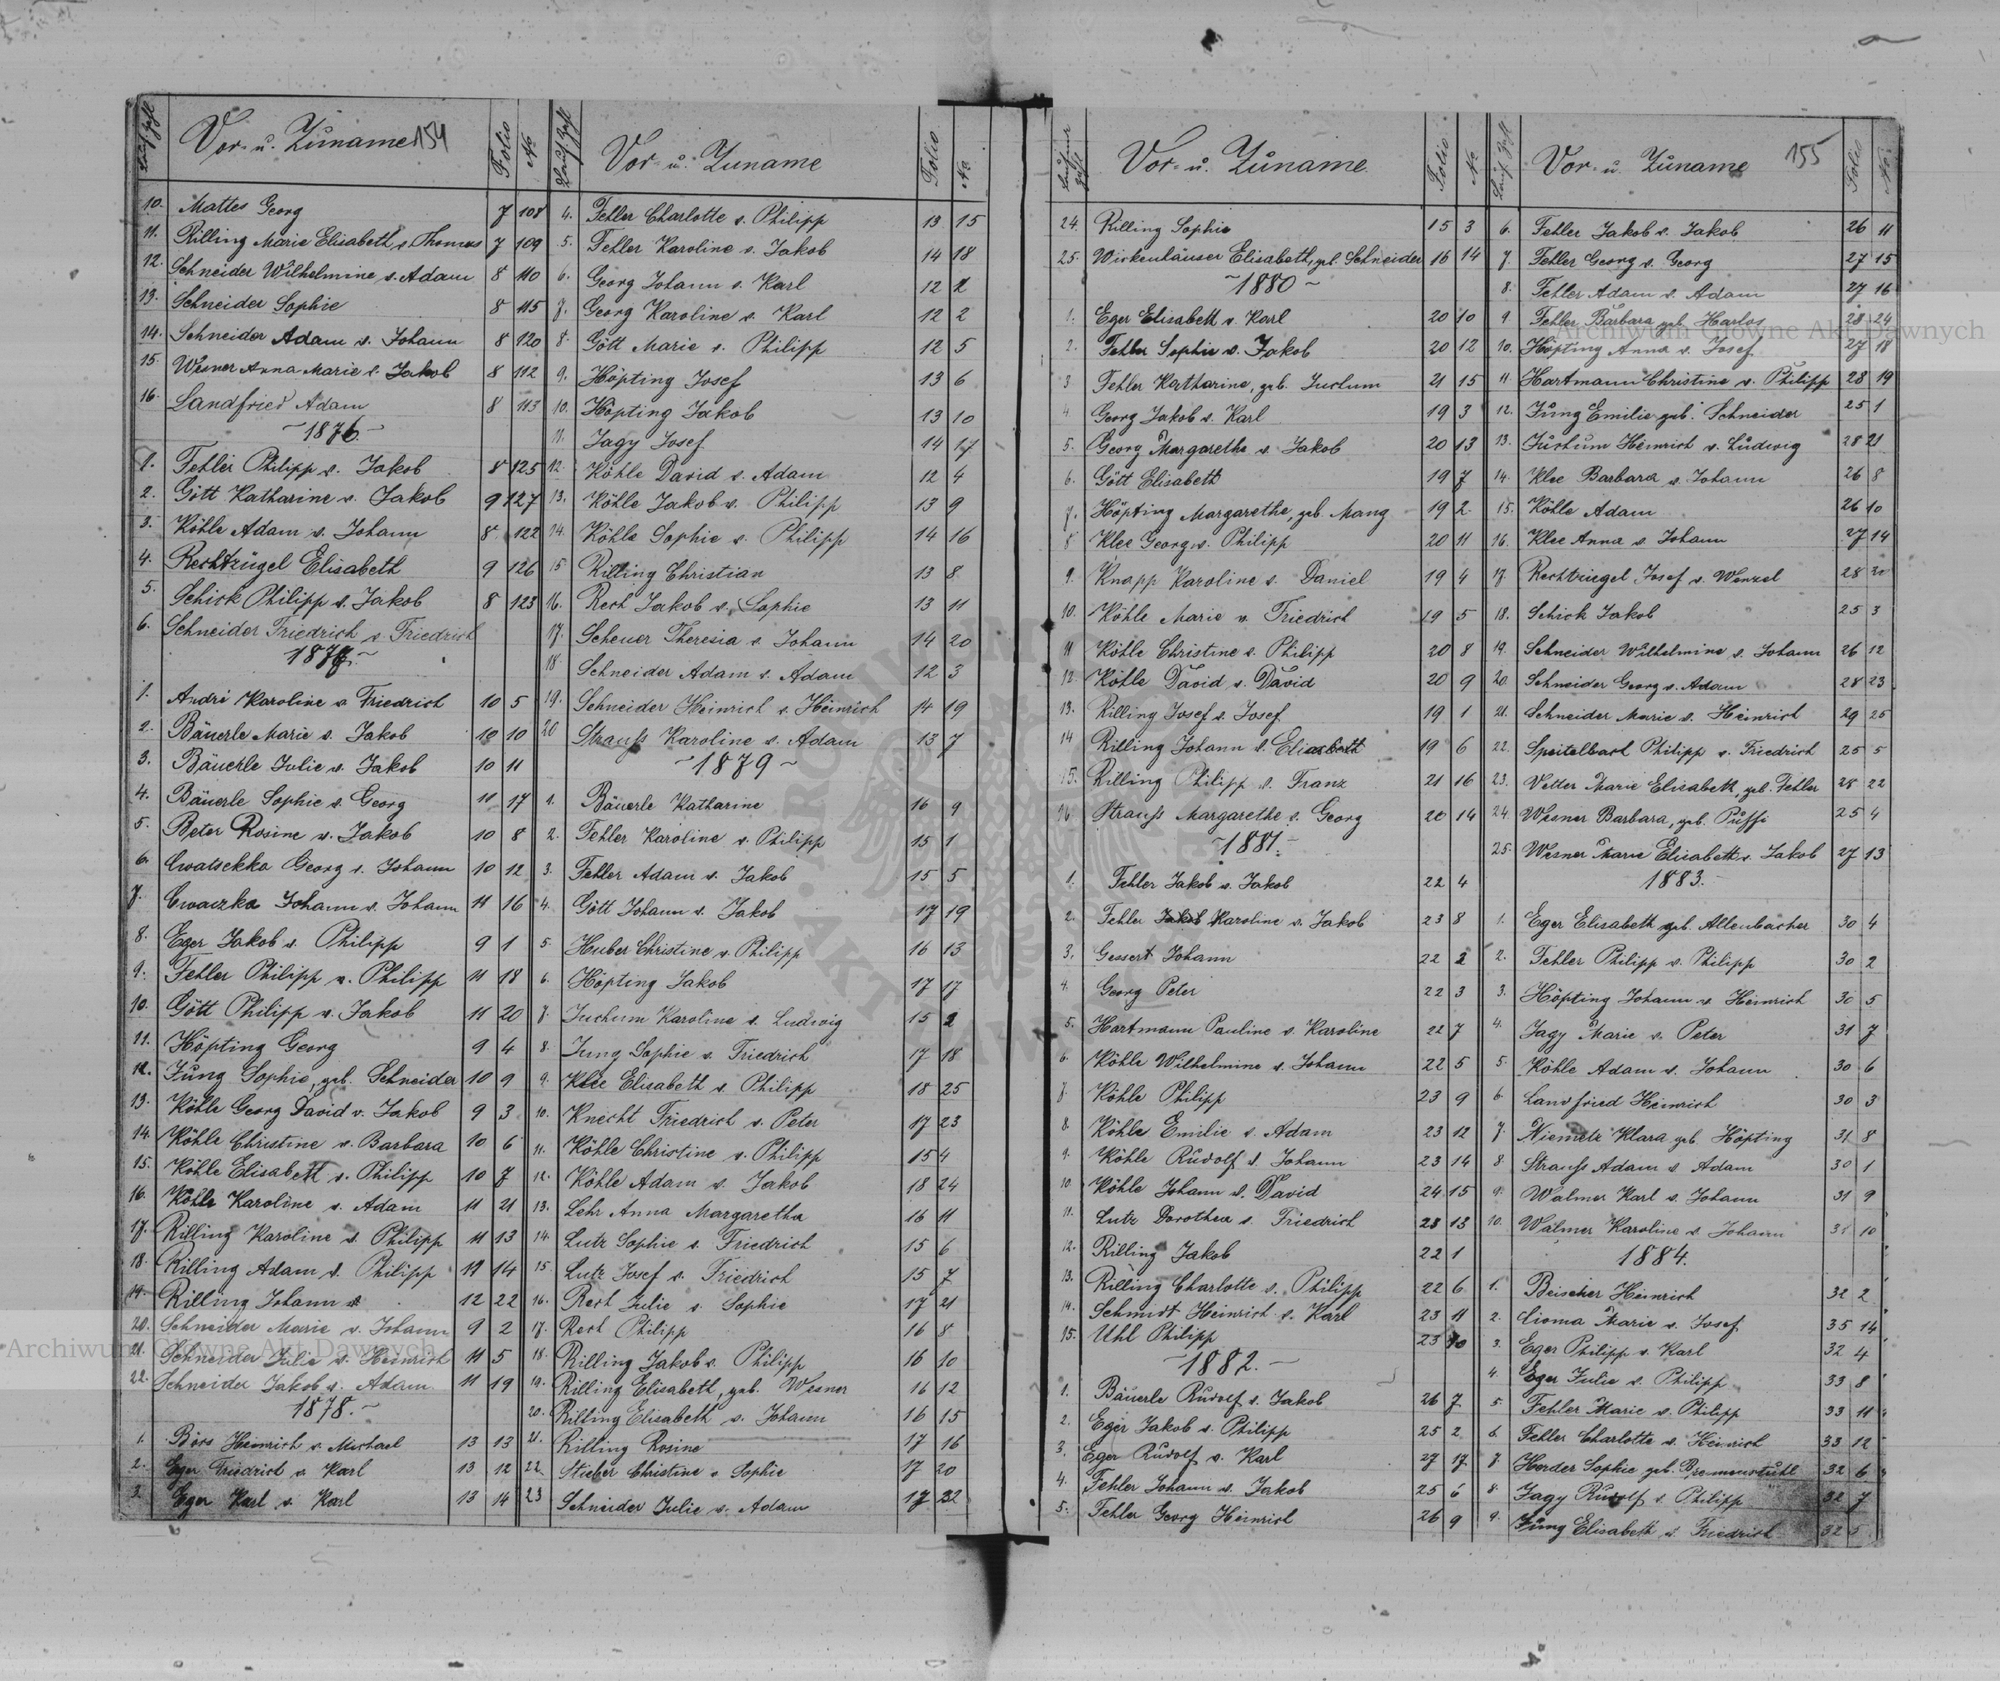 Lauf. Zahl Vor- u. Zuname 154 Folio No
10. Mattes Georg 7 108
11. Rilling Marie Elisabeth v. Thomas 7 109
12. Schneider Wilhelmine v. Adam 8 110
13. Schneider Sophie 8 115
14. Schneider Adam v. Johann 8 120
15. Wesner Anna Marie v. Jakob 8 112
16. Landfried Adam 8 113
1876.
1. Fehler Philipp v. Jakob 8 125
2. Gött Katharine v. Jakob 9 127
3. Köhle Adam v. Johann 8 122
4. Rechtzügel Elisabeth 9 126
5. Schick Philipp v. Jakob 8 123
6. Schneider Friedrich v. Friedrich
1877.
1. André Karoline v. Friedrich 10 5
2. Bäuerle Marie v. Jakob 10 10
3. Bäuerle Julie v. Jakob 10 11
4. Bäuerle Sophie v. Georg 11 17
5. Beter Rosine v. Jakob 10 8
6. Cwatschka Georg v. Johann 10 12
7. Cwaczka Johann v. Johann 11 16
8. Eger Jakob v. Philipp 9 1
9. Fehler Philipp v. Philipp 11 18
10. Gött Philipp v. Jakob 11 20
11. Höpting Georg 9 4
12. Jung Sophie, geb. Schneider 10 9
13. Köhle Georg David v. Jakob 9 3
14. Köhle Christine v. Barbara 10 6
15. Köhle Elisabeth v. Philipp 10 7
16. Köhle Karoline v. Adam 11 21
17. Rilling Karoline v. Philipp 11 13
18. Rilling Adam v. Philipp 11 14
19. Rilling Johann v. 12 22
20. Schneider Marie v. Johann 9 2
21. Schneider Julie v. Heinrich 11 5
22. Schneider Jakob v. Adam 11 19
1878.
1. Börs Heinrich v. Michael 13 13
2. Eger Friedrich v. Karl 13 12
3. Eger Karl v. Karl 13 14
Lauf. Zahl Vor- u. Zuname Folio No
4. Fehler Charlotte v. Philipp 13 15
5. Fehler Karoline v. Jakob 14 18
6. Georg Johann v. Karl 12 2
7. Georg Karoline v. Karl 12 2
8. Gött Marie v. Philipp 12 5
9. Höpting Josef 13 6
10. Höpting Jakob 13 10
11. Jagy Josef 14 17
12. Köhle David v. Adam 12 4
13. Köhle Jakob v. Philipp 13 9
14. Köhle Sophie v. Philipp 14 16
15 Rilling Christian 13 8
16. Rech Jakob v. Sophie 13 11
17. Scheuer Theresia v. Johann 14 20
18. Schneider Adam v. Adam 12 3
19. Schneider Heinrich v. Heinrich 14 19
20 Strauß Karoline v. Adam 13 7
1879
1. Bäuerle Katharine 16 9
2. Fehler Karoline v. Philipp 15 1
3. Fehler Adam v. Jakob 15 5
4. Gött Johann v. Jakob 17 19
5. Huber Christine v. Philipp 16 13
6. Höpting Jakob 17 17
7. Juchum Karoline v. Ludwig 15 2
8. Jung Sophie v. Friedrich 17 18
9. Klee Elisabeth v. Philipp 18 25
10. Knecht Friedrich v. Peter 17 23
11. Köhle Christine v. Philipp 15 4
12. Köhle Adam v. Jakob 18 24
13. Lehr Anna Margaretha 16 11
14. Lutz Sophie v. Friedrich 15 6
15. Lutz Josef v. Friedrich 15 7
16. Rech Julie v. Sophie 17 21
17. Rech Philipp 16 8
18. Rilling Jakob v. Philipp 16 10
19. Rilling Elisabeth, geb. Wesner 16 12
20. Rilling Elisabeth v. Johann 16 15
21. Rilling Rosine 17 16
22. Stieber Christine v. Sophie 17 20
23 Schneider Julie v. Adam 17 22
Vor- u. Zuname. Folio No
24. Rilling Sophie 15 3
25. Wirkenhäuser Elisabeth, geb. Schneider 16 14
1880
1. Eger Elisabeth v. Karl 20 10
2. Fehler Sophie v. Jakob 20 12
3 Fehler Katharine, geb. Juchum 21 15
4. Georg Jakob v. Karl 19 3
5. Georg Margarethe v. Jakob 20 13
6. Gött Elisabeth 19 7
7. Höpting Margarethe, geb. Mang 19 2
8 Klee Georg v. Philipp 20 11
9. Knapp Karoline v. Daniel 19 4
10. Köhle Marie v. Friedrich 19 5
11 Köhle Christine v. Philipp 20 8
12. Köhle David v. David 20 9
13. Rilling Josef v. Josef 19 1
14 Rilling Johann v. Elisabeth 19 6
15. Rilling Philipp v. Franz 21 16
16 Strauß Margarethe v. Georg 20 14
1881.
1. Fehler Jakob v. Jakob 22 4
2. Fehler Jakob Karoline v. Jakob 23 8
3. Gessert Johann 22 2
4. Georg Peter 22 3
5. Hartmann Pauline v. Karoline 22 7
6. Köhle Wilhelmine v. Johann 22 5
7. Köhle Philipp 23 9
8. Köhle Emilie v. Adam 23 12
9. Köhle Rudolf v. Johann 23 14
10. Köhle Johann v. David 24 15
11. Lutz Dorothea v. Friedrich 23 13
12. Rilling Jakob 22 1
13. Rilling Charlotte v. Philipp 22 6
14. Schmidt Heinrich v. Karl 23 11
15. Uhl Philipp 23 10
1882.
1. Bäuerle Rudolf v. Jakob 26 7
2. Eger Jakob v. Philipp 25 2
3. Eger Rudolf v. Karl 27 17
4. Fehler Johann v. Jakob 25 6
5. Fehler Georg Heinrich 26 9
Lauf. Zahl Vor- u. Zuname 155 Folio No
6. Fehler Jakob v. Jakob 26 11
7. Fehler Georg v. Georg 27 15
8. Fehler Adam v. Adam 27 16
9 Fehler Barbara geb. Harlos 28 24
10. Höpting Anna v. Josef 27 18
11 Hartmann Christine v. Philipp 28 19
12. Jung Emilie geb. Schneider 25 1
13. Juchum Heinrich v. Ludwig 28 21
14. Klee Barbara v. Johann 26 8
15. Köhle Adam 26 10
16. Klee Anna v. Johann 27 14
17. Rechtziegel Josef v. Wenzel 28 20
18. Schick Jakob 25 3
19. Schneider Wilhelmine v. Johann 26 12
20. Schneider Georg v. Adam 28 23
21. Schneider Marie v. Heinrich 29 25
22. Speitelbach Philipp v. Friedrich 25 5
23. Vetter Marie Elisabeth, geb. Fehler 28 22
24. Wesner Barbara, geb. Puffi 25 4
25. Wesner Marie Elisabeth v. Jakob 27 13
1883.
1. Eger Elisabeth geb. Allenbacher 30 4
2. Fehler Philipp v. Philipp 30 2
3. Höpting Johann v. Heinrich 30 5
4. Jagy Marie v. Peter 31 7
5. Köhle Adam v. Johann 30 6
6. Landfried Heinrich 30 3
7. Niemetz Klara geb. Höpting 31 8
8 Strauß Adam v. Adam 30 1
9. Walmer Karl v. Johann 31 9
10. Walmer Karoline v. Johann 31 10
1884.
1. Beischer Heinrich 32 2
2. Cioma Marie v. Josef 35 14
3. Eger Philipp v. Karl 32 4
4. Eger Julie v. Philipp 33 8
5 Fehler Marie v. Philipp 33 11
6. Fehler Charlotte v. Heinrich 33 12
7. Horder Sophie geb. Bremenstuhl 32 6
8. Jagy Rudolf v. Philipp 32 7
9. Jung Elisabeth v. Friedrich 32 5
Archiwum Główne Akt Dawnych
Archiwum Główne Akt Dawnych